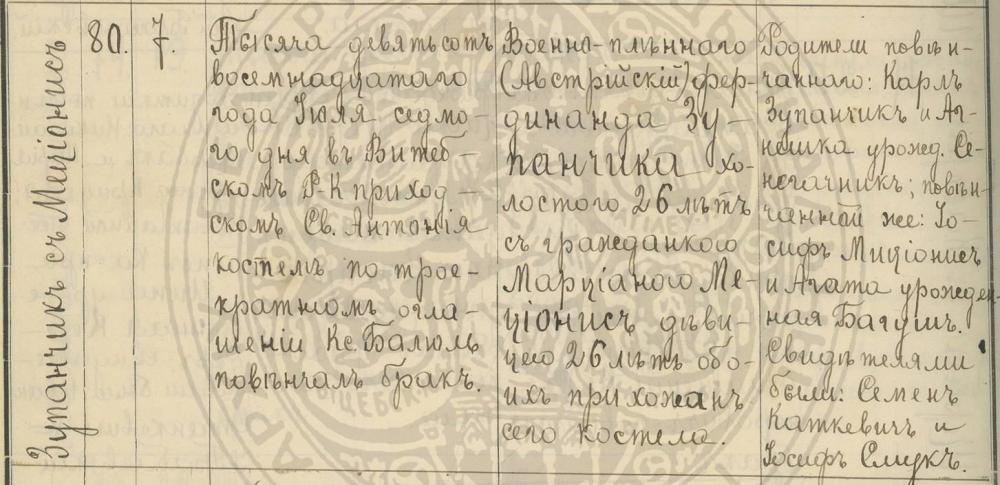 Зупанчикъ съ Меціонисъ
80.
7.
Тысяча девятьсотъ
восемнадцатаго
года Іюля седмо-
го дня въ Витеб-
скомъ Р-К приход-
скомъ Св. Антонія
костелѣ по трое-
кратномъ огла-
шеніи Кс. Балюль
повѣнчалъ бракъ.
Военно-плѣннаго
(Австрійскій) Фер-
динанда Зу-
панчика хо-
лостого 26 лѣтъ
съ гражданкою
Марціаною Ме-
ціонисъ дѣви-
цею 26 лѣтъ обо-
ихъ прихожанъ
сего костела.
Родители повѣн-
чаннаго: Карлъ
Зупанчикъ и Аг-
нешка урожд. Се-
негачникъ; повѣн-
чанной же: Іо-
сифъ Миціонисъ
и Агата урожден-
ная Багушъ.
Свидѣтелями
были: Семенъ
Каткевичъ и
Іосифъ Смукъ.